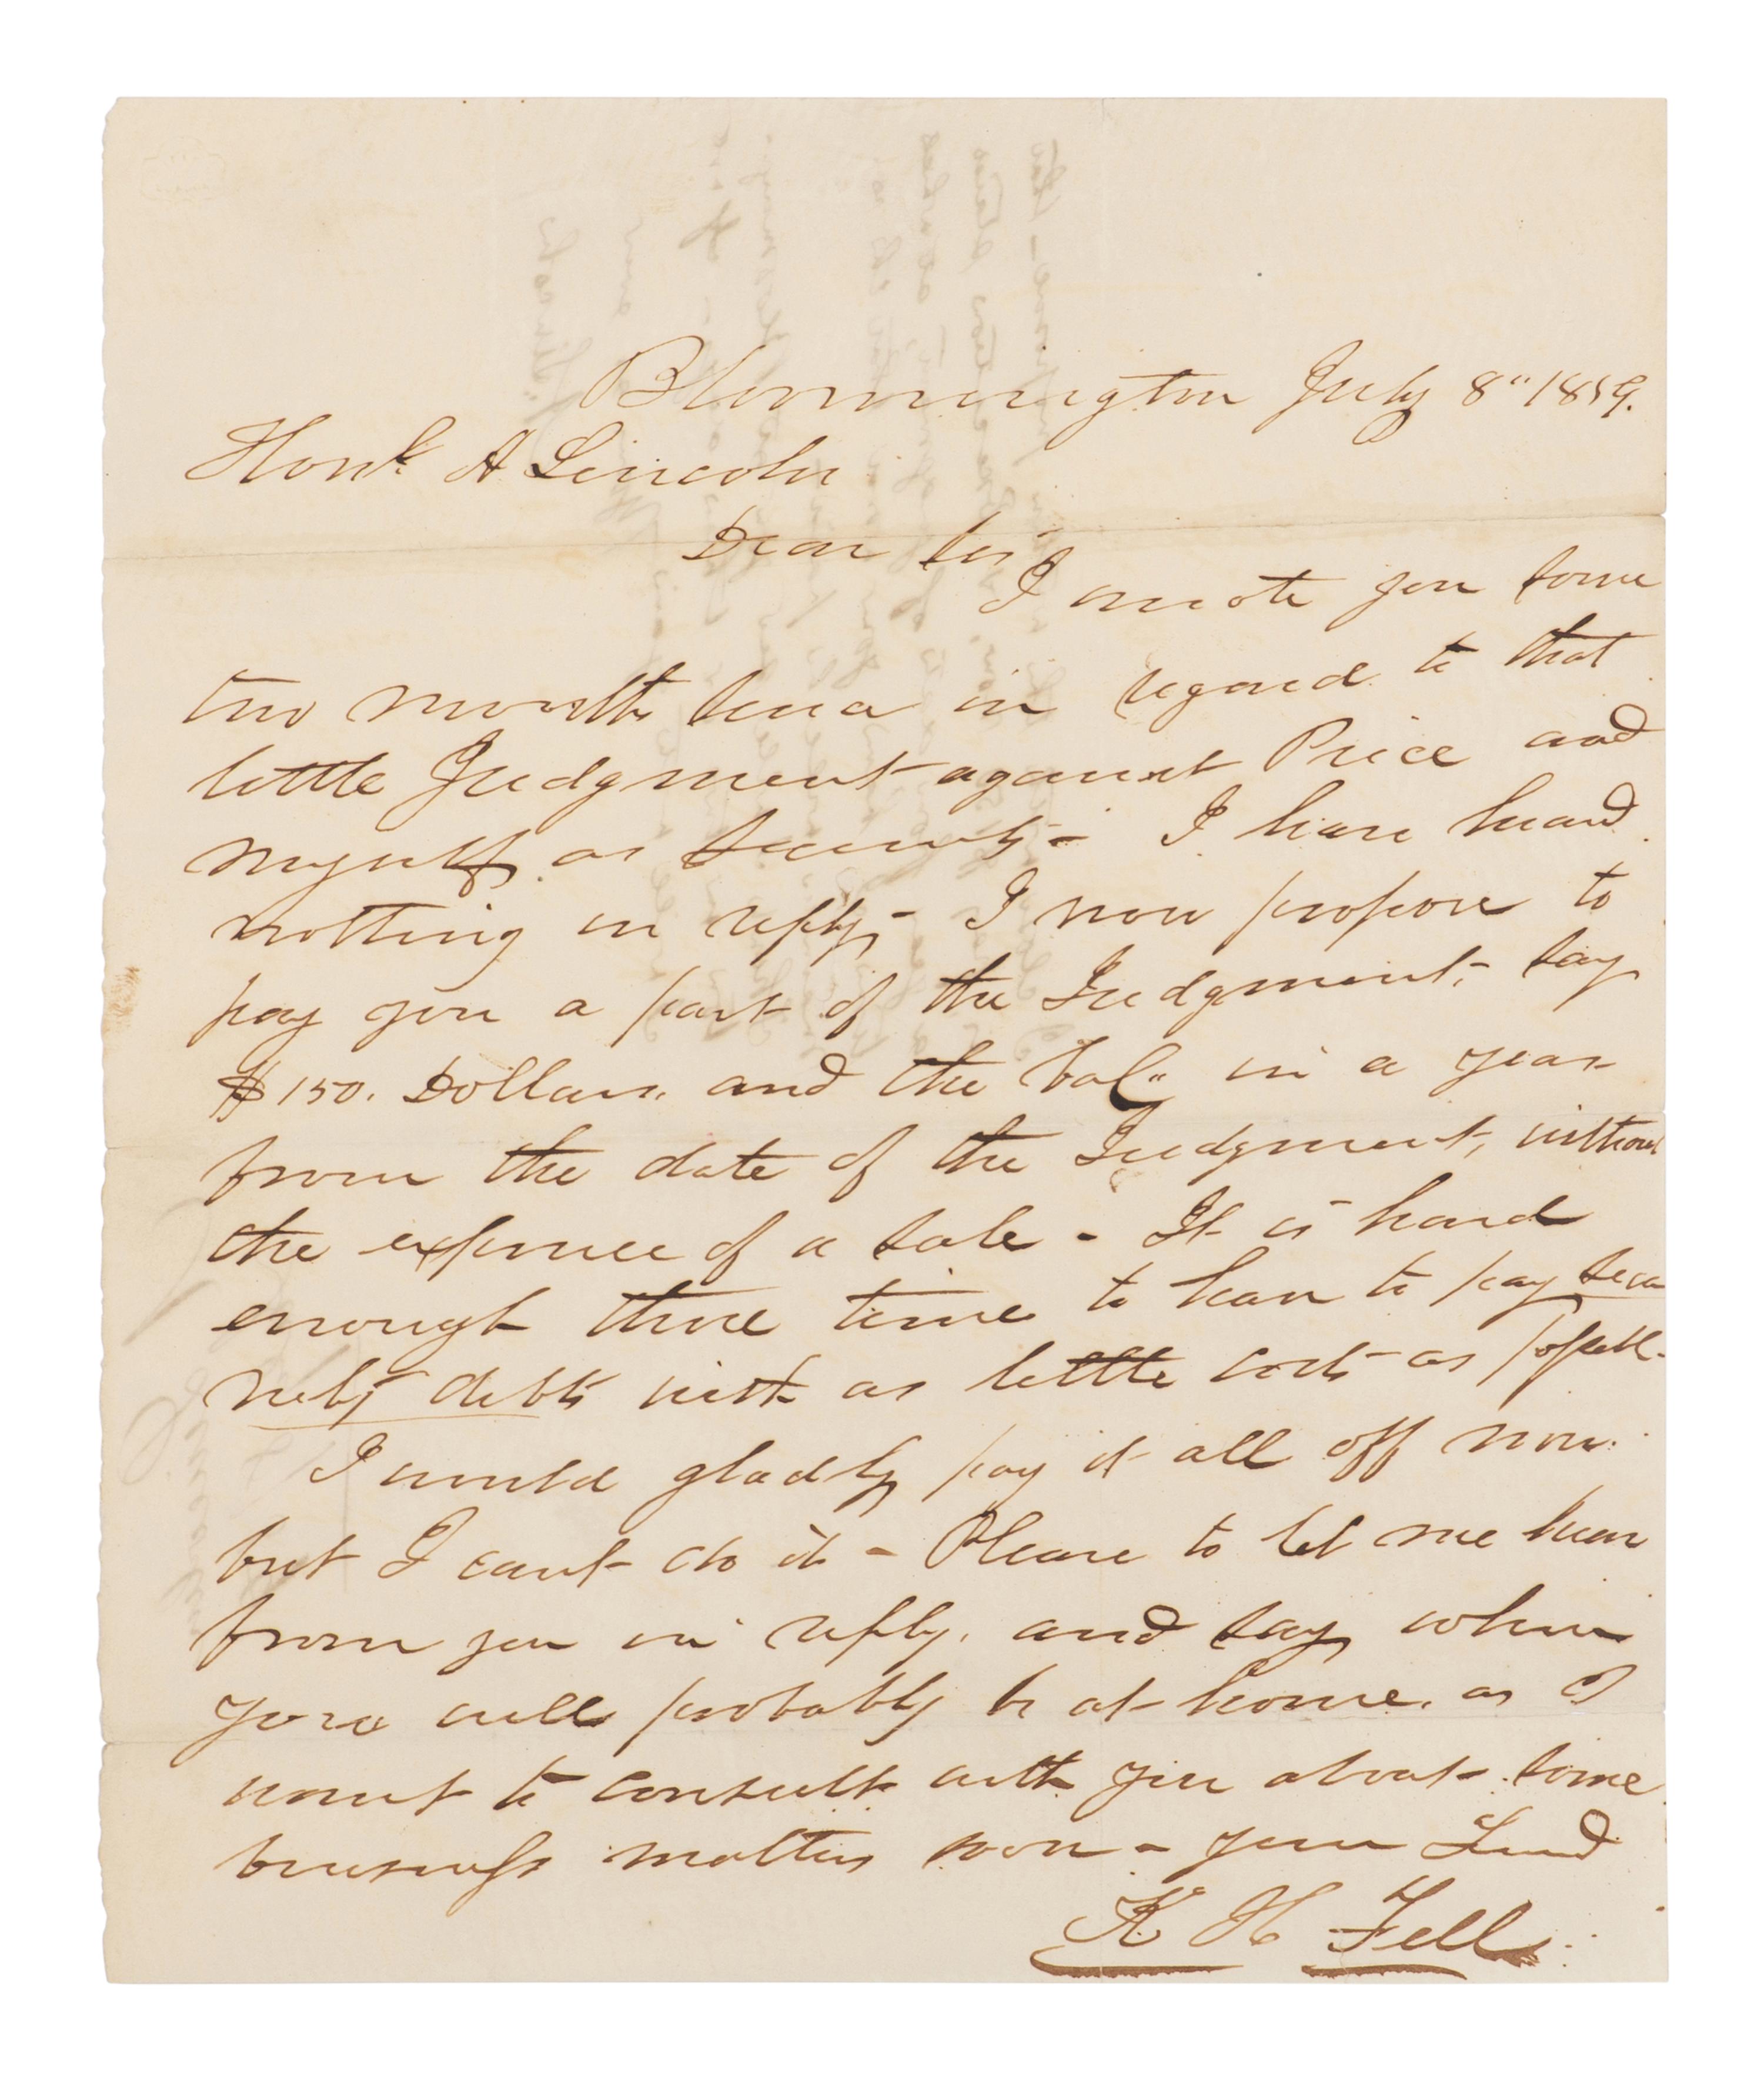 Bloomington July 8" 1859.
Honl. A Lincoln
Dear Sir
I wrote you some
two months since in regard to that
little Judgment against Price and
myself as Security - I have heard
nothing in reply - I now propose to
pay you a part of the Judgment, - say
$150. Dollars. and the bal" in a year
from the date of the Judgment, without
the expense of a sale - It is hard
enough these times to have to pay secu
rity debts with as little costs as possible -
I would gladly pay it all off now
but I cant do it - Please to let me hear
from you in reply, and say when
you will probably be at home. as I
want to consult with you about some
business matters soon - your friend
K H Fell